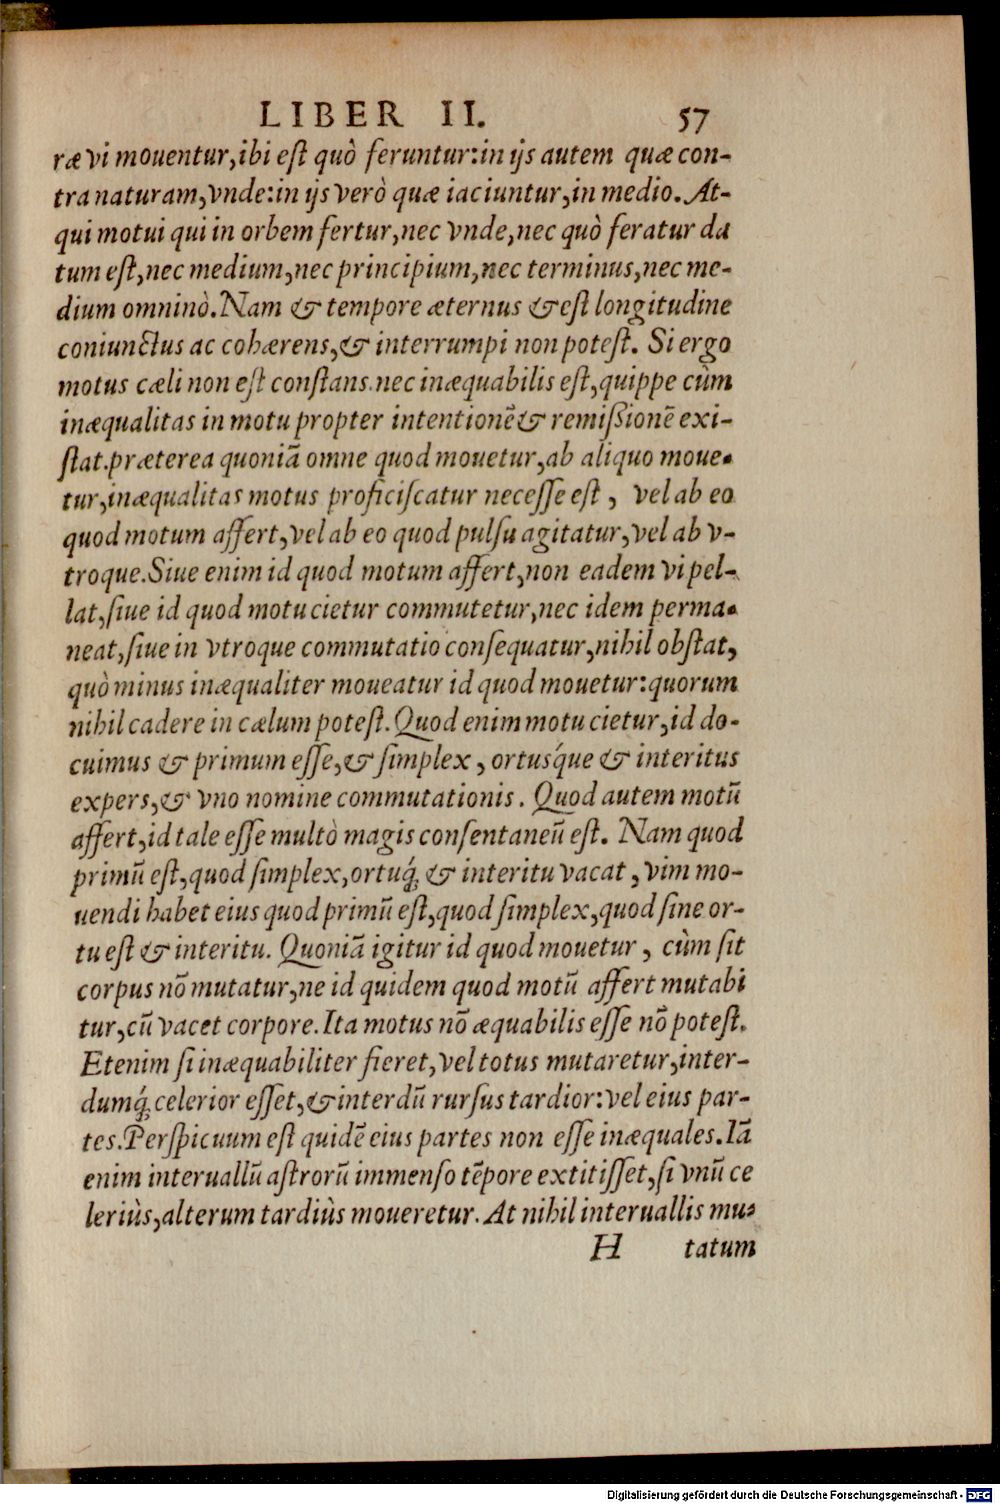 LIBER II. 57
ræ vi mouentur, ibi est quò feruntur: in ijs autem quæ con-
tra naturam, vnde: in ijs verò quæ iaciuntur, in medio. At-
qui motui qui in orbem fertur, nec vnde, nec quò feratur da
tum est, nec medium, nec principium, nec terminus, nec me-
dium omninò. Nam & tempore æternus & est longitudine
coniunctus ac cohærens, & interrumpi non potest. Si ergo
motus cæli non est constans. nec inæquabilis est, quippe cùm
inæqualitas in motu propter intentionē & remißionē exi-
stat. præterea quoniā omne quod mouetur, ab aliquo moue-
tur, inæqualitas motus proficiscatur necesse est, vel ab eo
quod motum affert, vel ab eo quod pulsu agitatur, vel ab v-
troque. Siue enim id quod motum affert, non eadem vi pel-
lat, siue id quod motu cietur commutetur, nec idem perma-
neat, siue in vtroque commutatio consequatur, nihil obstat,
quò minus inæqualiter moueatur id quod mouetur: quorum
nihil cadere in cælum potest. Quod enim motu cietur, id do-
cuimus & primum esse, & simplex, ortusq́ue & interitus
expers, & vno nomine commutationis. Quod autem motū
affert, id tale esse multò magis consentaneū est. Nam quod
primū est, quod simplex, ortuq́; & interitu vacat, vim mo-
uendi habet eius quod primū est, quod simplex, quod sine or-
tu est & interitu. Quoniā igitur id quod mouetur, cùm sit
corpus nō mutatur, ne id quidem quod motū affert mutabi
tur, cū vacet corpore. Ita motus nō æquabilis esse nō potest.
Etenim si inæquabiliter fieret, vel totus mutaretur, inter-
dumq́; celerior esset, & interdū rursus tardior: vel eius par-
tes. Perspicuum est quidē eius partes non esse inæquales. Iā
enim interuallū astrorū immenso tēpore extitisset, si vnū ce
leriùs, alterum tardiùs moueretur. At nihil interuallis mu-
H tatum
Digitalisierung gefördert durch die Deutsche Forschungsgemeinschaft - DFG